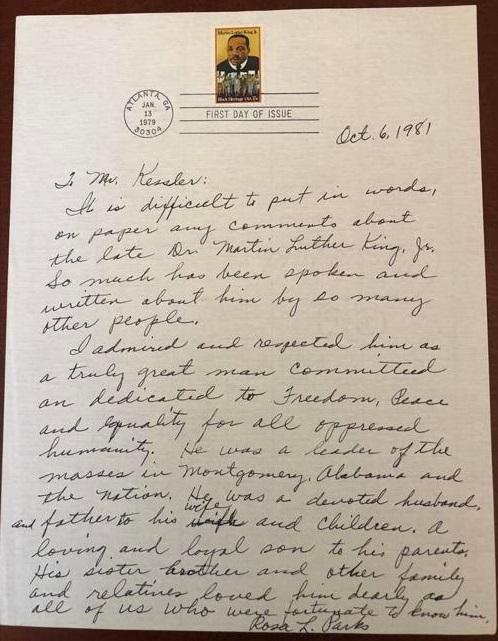 Martin Luther King Jr.
Black Heritage USA 15c
ATLANTA, GA
JAN.
13
1979
30304
FIRST DAY OF ISSUE
Oct. 6, 1981
To Mr. Kessler:
It is difficult to put in words,
on paper any comments about
the late Dr. Martin Luther King, Jr.
So much has been spoken and
written about him by so many
other people.
I admired and respected him as
a truly great man committed
an dedicated to Freedom, Peace
and equality for all oppressed
humanity. He was a leader of the
masses in Montgomery, Alabama and
the nation. He was a devoted husband,
wife
and father to his and children. A
loving and loyal son to his parents.
His sister brother and other family
and relatives loved him dearly as
all of us who were fortunate to know him.
Rosa L. Parks